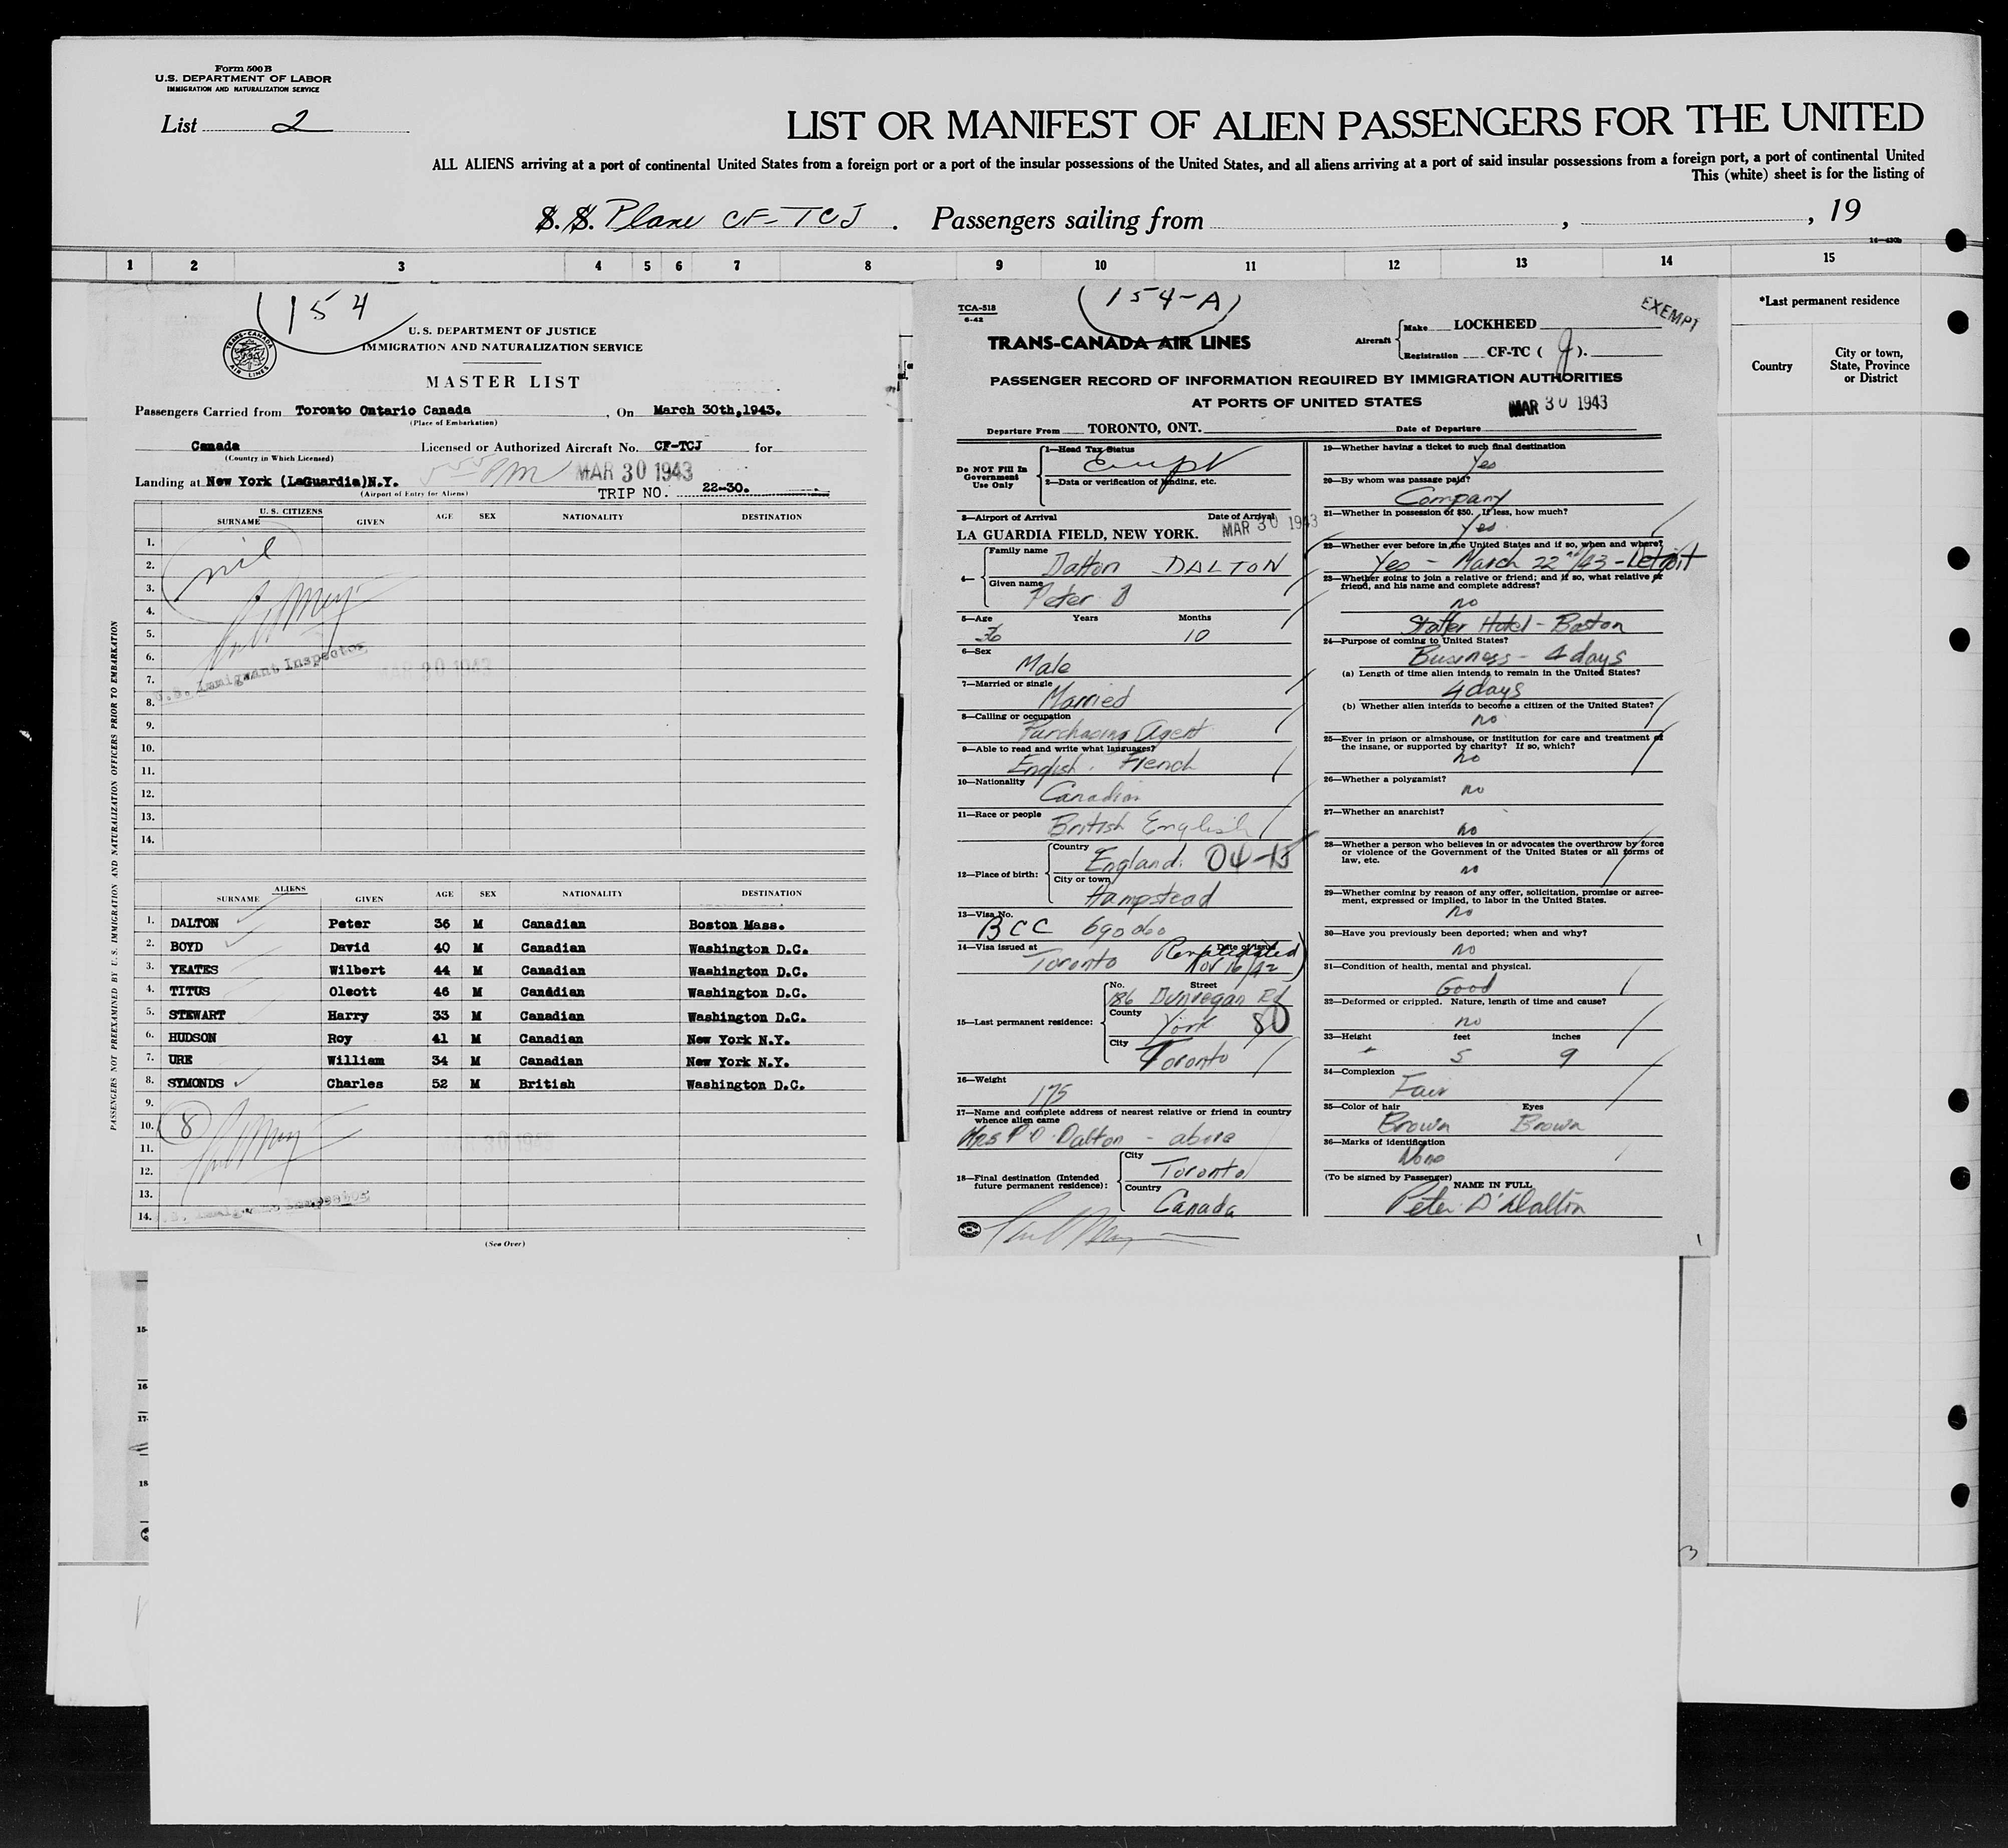 Form 500 B
U.S. DEPARTMENT OF LABOR
IMMIGRATION AND NATURALIZATION SERVICE
List 2
LIST OR MANIFEST OF ALIEN PASSENGERS FOR THE UNITED
ALL ALIENS arriving at a port of continental United States from a foreign port or a port of the insular possessions of the United States, and all aliens arriving at a port of said insular possessions from a foreign port, a port of continental United
This (white) sheet is for the listing of
S.S. Plane CF-TCJ. Passengers sailing from , , 19
1 2 3 4 5 6 7 8 9 10 11 12 13 14 15
*Last permanent residence
Country
City or town, State, Province or District
(154
TRANS-CANADA AIR LINES
U. S. DEPARTMENT OF JUSTICE
IMMIGRATION AND NATURALIZATION SERVICE
MASTER LIST
Passengers Carried from Toronto Ontario Canada, On March 30th,1943.
(Place of Embarkation)
Canada Licensed or Authorized Aircraft No. CF-TCJ for
(Country in Which Licensed)
MAR 30 1943
Landing at New York (LaGuardia)N.Y.
(Airport of Entry for Aliens)
TRIP NO. 22-30.
U. S. CITIZENS
SURNAME GIVEN AGE SEX NATIONALITY DESTINATION
1.
2.
3.
4.
5.
6.
7.
8.
9.
10.
11.
12.
13.
14.
nil
U.S. Immigrant Inspector
MAR 30 1943
PASSENGERS NOT PREEXAMINED BY U. S. IMMIGRATION AND NATURALIZATION OFFICERS PRIOR TO EMBARKATION
ALIENS
SURNAME GIVEN AGE SEX NATIONALITY DESTINATION
1. DALTON Peter 36 M Canadian Boston Mass.
2. BOYD David 40 M Canadian Washington D.C.
3. YEATES Wilbert 44 M Canadian Washington D.C.
4. TITUS Olcott 46 M Canadian Washington D.C.
5. STEWART Harry 33 M Canadian Washington D.C.
6. HUDSON Roy 41 M Canadian New York N.Y.
7. URE William 34 M Canadian New York N.Y.
8. SYMONDS Charles 52 M British Washington D.C.
9.
10. 8
11.
12.
13.
14.
(See Over)
TCA-518
6-42
(154-A)
EXEMPT
TRANS-CANADA AIR LINES
Aircraft
Make LOCKHEED
Registration CF-TC ( J ).
PASSENGER RECORD OF INFORMATION REQUIRED BY IMMIGRATION AUTHORITIES
AT PORTS OF UNITED STATES
MAR 30 1943
Departure From TORONTO, ONT. Date of Departure
Do NOT Fill In Government Use Only
1—Head Tax Status
2—Data or verification of landing, etc.
3—Airport of Arrival Date of Arrival
LA GUARDIA FIELD, NEW YORK. MAR 30 1943
4—
Family name Dalton DALTON
Given name Peter D
5—Age Years Months
36 10
6—Sex
Male
7—Married or single
Married
8—Calling or occupation
Purchasing Agent
9—Able to read and write what languages?
English. French
10—Nationality
Canadian
11—Race or people British English
12—Place of birth:
Country England. 04-13
City or town
Hampstead
13—Visa No.
BCC 690d60
14—Visa issued at Date of Issue
Toronto Revalidated Nov 16/42)
15—Last permanent residence:
No. Street
186 Dunvegan Rd
County York 80
City Toronto
16—Weight
175
17—Name and complete address of nearest relative or friend in country whence alien came
Mrs P D Dalton - above
18—Final destination (Intended future permanent residence):
City Toronto
Country Canada
19—Whether having a ticket to such final destination
Yes
20—By whom was passage paid?
Company
21—Whether in possession of $50. If less, how much?
Yes.
22—Whether ever before in the United States and if so, when and where?
Yes - March 22nd/43 - Detroit
23—Whether going to join a relative or friend; and if so, what relative or friend, and his name and complete address?
no
Statler Hotel - Boston
24—Purpose of coming to United States?
Business - 4 days
(a) Length of time alien intends to remain in the United States?
4 days
(b) Whether alien intends to become a citizen of the United States?
no
25—Ever in prison or almshouse, or institution for care and treatment of the insane, or supported by charity? If so, which?
no
26—Whether a polygamist?
no
27—Whether an anarchist?
no
28—Whether a person who believes in or advocates the overthrow by force or violence of the Government of the United States or all forms of law, etc.
no
29—Whether coming by reason of any offer, solicitation, promise or agreement, expressed or implied, to labor in the United States.
no
30—Have you previously been deported; when and why?
no
31—Condition of health, mental and physical.
Good
32—Deformed or crippled. Nature, length of time and cause?
no
33—Height feet inches
5 9
34—Complexion
Fair
35—Color of hair Eyes
Brown Brown
36—Marks of identification
None
(To be signed by Passenger) NAME IN FULL
Peter D'Dalton
15-
16-
17-
18-